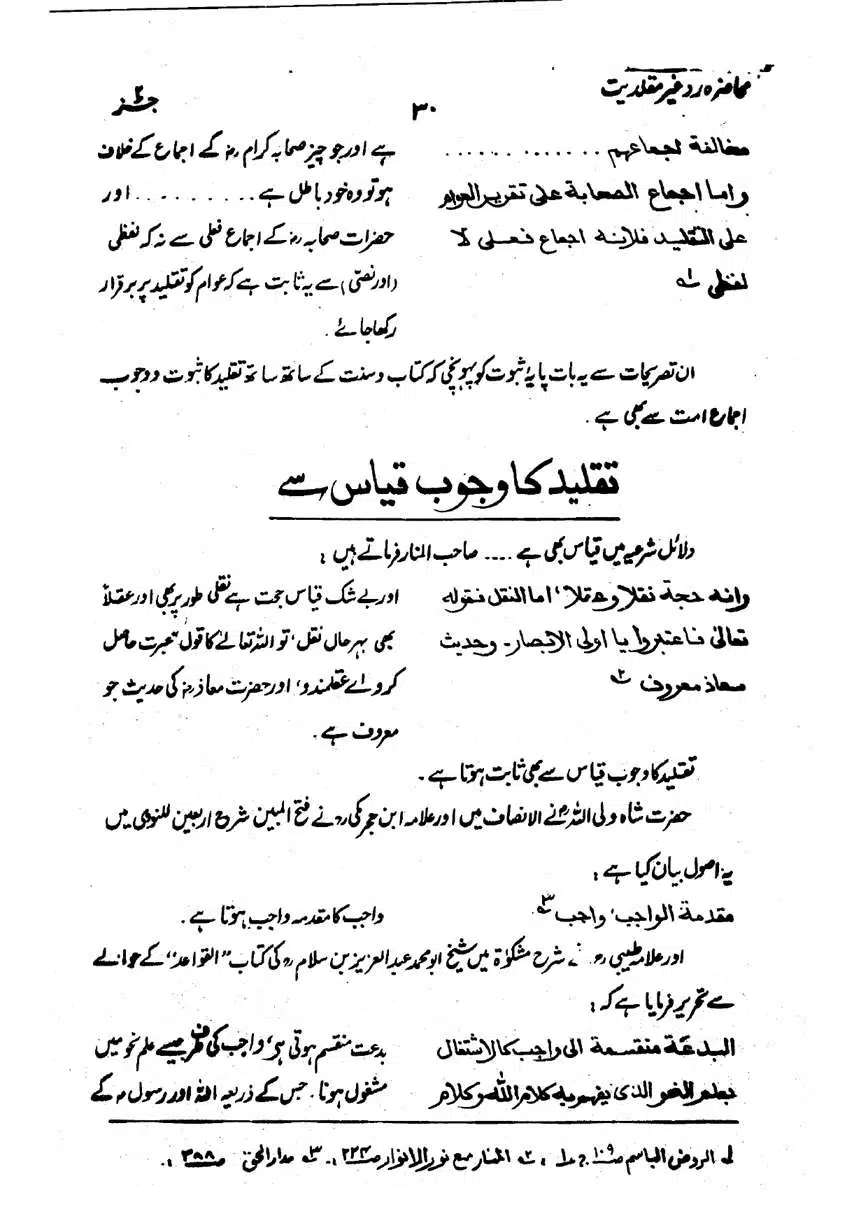 محاضرہ رد غیر مقلدیت ۳۰ جز ۲
مخالفة لجماعهم . . . . . . . . . . . . ہے اور جو چیز صحابہ کرام رضہ کے اجماع کے خلاف
واما اجماع الصحابة على تقرير العوام ہو تو وہ خود باطل ہے . . . . . . . . . اور
على التقليد فلانه اجماع فعلى لا حضرات صحابہ رضہ کے اجماع فعلی سے نہ کہ لفظی
لفظى ؎۱ (اور نصی) سے یہ ثابت ہے کہ عوام کو تقلید پر برقرار
رکھا جائے ۔
ان تصریحات سے یہ بات پایۂ ثبوت کو پہونچی کہ کتاب و سنت کے ساتھ ساتھ تقلید کا ثبوت و وجوب
اجماع امت سے بھی ہے ۔
تقلید کا وجوب قیاس سے
دلائل شرعیہ میں قیاس بھی ہے .... صاحب المنار فرماتے ہیں :
وانه حجة نقلا وعقلا، اما النقل فقوله اور بے شک قیاس حجت ہے نقلی طور پر بھی اور عقلاً
تعالىٰ فاعتبروا يا اولى الابصار۔ وحديث بھی بہر حال نقل، تو اللہ تعالےٰ کا قول "عبرت حاصل
معاذ معروف ؎۲ کرو اے عقلمندو، اور حضرت معاذ رضہ کی حدیث جو
معروف ہے ۔
تقلید کا وجوب قیاس سے بھی ثابت ہوتا ہے ۔
حضرت شاہ ولی اللہؒ نے الانصاف میں اور علامہ ابن حجر مکی رحہ نے فتح المبین شرح اربعین للنووی میں
یہ اصول بیان کیا ہے :
مقدمة الواجب، واجب ؎۳ واجب کا مقدمہ واجب ہوتا ہے ۔
اور علامہ طیبی رحہ نے شرح مشکوٰۃ میں شیخ ابو محمد عبدالعزیز بن سلام رحہ کی کتاب "القواعد" کے حوالے
سے تحریر فرمایا ہے کہ :
البدعة منقسمة الى واجب كالاشتغال بدعت منقسم ہوتی ہے، واجب کی طرف جیسے علم نحو میں
بعلم النحو الذى يفهم به كلام الله وكلام مشغول ہونا ۔ جس کے ذریعہ اللہ اور رسول ؐ کے
؎۱ الروض الباسم ص۱۰۹ ج۱ ؎۲ المنار مع نور الانوار ص۲۲۴ ۔ ؎۳ مدار الحق ص۳۸۸ ۔